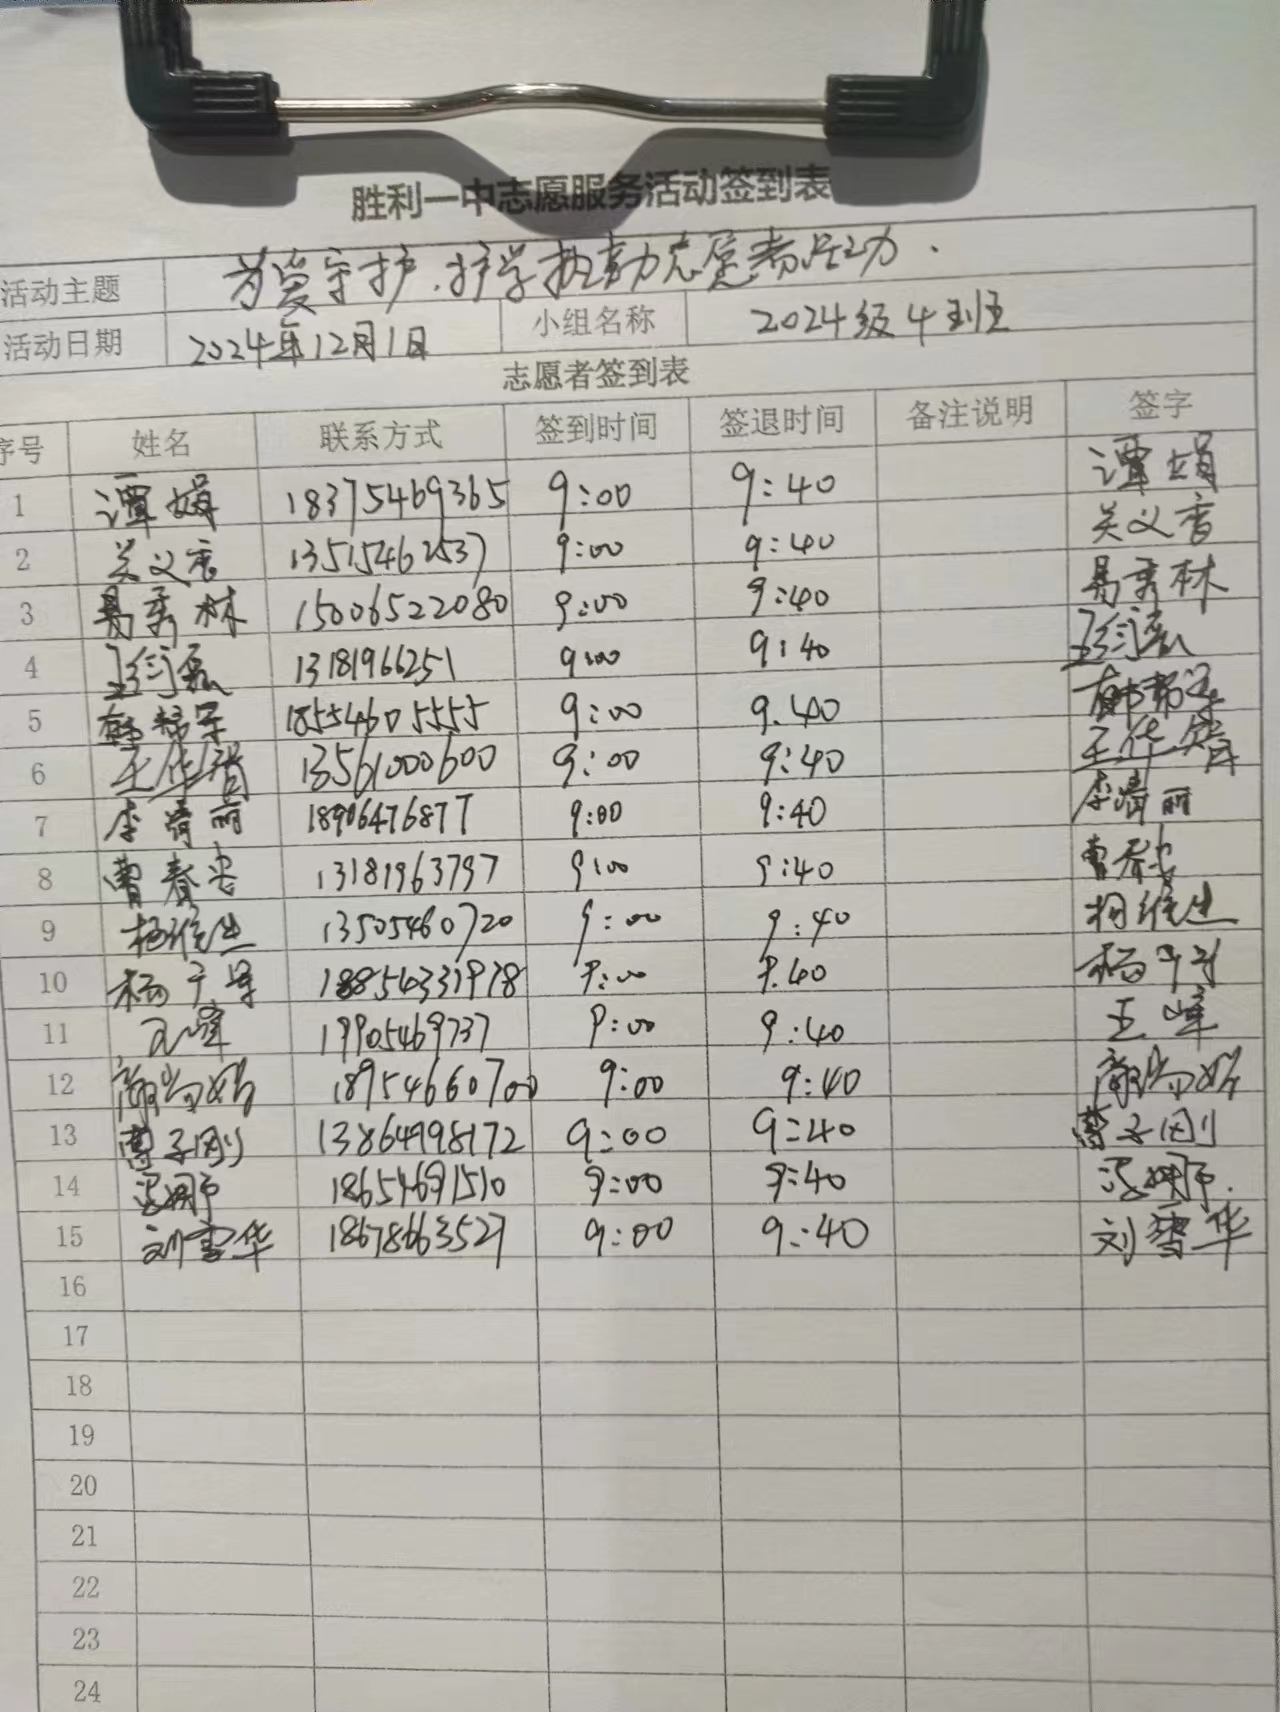 胜利一中志愿服务活动签到表
活动主题 为爱守护.护学执勤志愿者活动.
活动日期 2024年12月1日 小组名称 2024级4班
志愿者签到表
序号 姓名 联系方式 签到时间 签退时间 备注说明 签字
1 谭娟 18375469365 9:00 9:40 谭娟
2 关义香 13515462537 9:00 9:40 关义香
3 易秀林 15006522080 9:00 9:40 易秀林
4 13181966251 9:00 9:40
5 18554605555 9:00 9.40
6 王华 13561000600 9:00 9:40 王华
7 李清丽 18906476877 9:00 9:40 李清丽
8 曹春 13181963797 9:00 9:40 曹春
9 杨维 13505460720 9:00 9:40 杨维
10 杨 18854331978 9:00 9.40 杨
11 王峰 19905469737 9:00 9:40 王峰
12 18954660700 9:00 9:40
13 曹子刚 13864998172 9:00 9:40 曹子刚
14 18654691510 9:00 9:40
15 刘雪华 18678663527 9:00 9:40 刘雪华
16
17
18
19
20
21
22
23
24